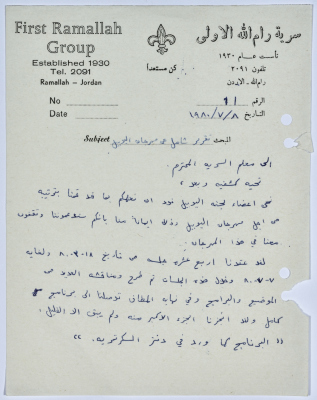 First Ramallah
Group
Established 1930
Tel. 2091
Ramallah – Jordan
سرية رام الله الاولى
تأسست عام ١٩٣٠
تلفون ٢٠٩١
رام الله – الاردن
كن مستعداً
No
Date
الرقم ١١
التاريخ ١٩٨٠/٧/٨
Subject
المبحث تقرير شامل عن مهرجان اليوبيل
الى معلم السريه المحترم .
تحيه كشفيه وبعد ،
نحن اعضاء لجنه اليوبيل نود ان نعلمكم بما قد قمنا بترتيبه
من اجل مهرجان اليوبيل وذلك ايماناً منا بانكم ستدعموننا وتقفون
معنا في هذا المهرجان .
لقد عقدنا اربع عشره جلسه من تاريخ ولغايه
وخلال هذه الجلسات تم طرح ومناقشه العديد من
المواضيع والبرامج وفي نهايه المطاف توصلنا الى برنامج
كامل وقد انجزنا الجزء الاكبر منه ولم يبق الا القليل .
(( البرنامج كما ورد في دفتر السكرتيريه . ))